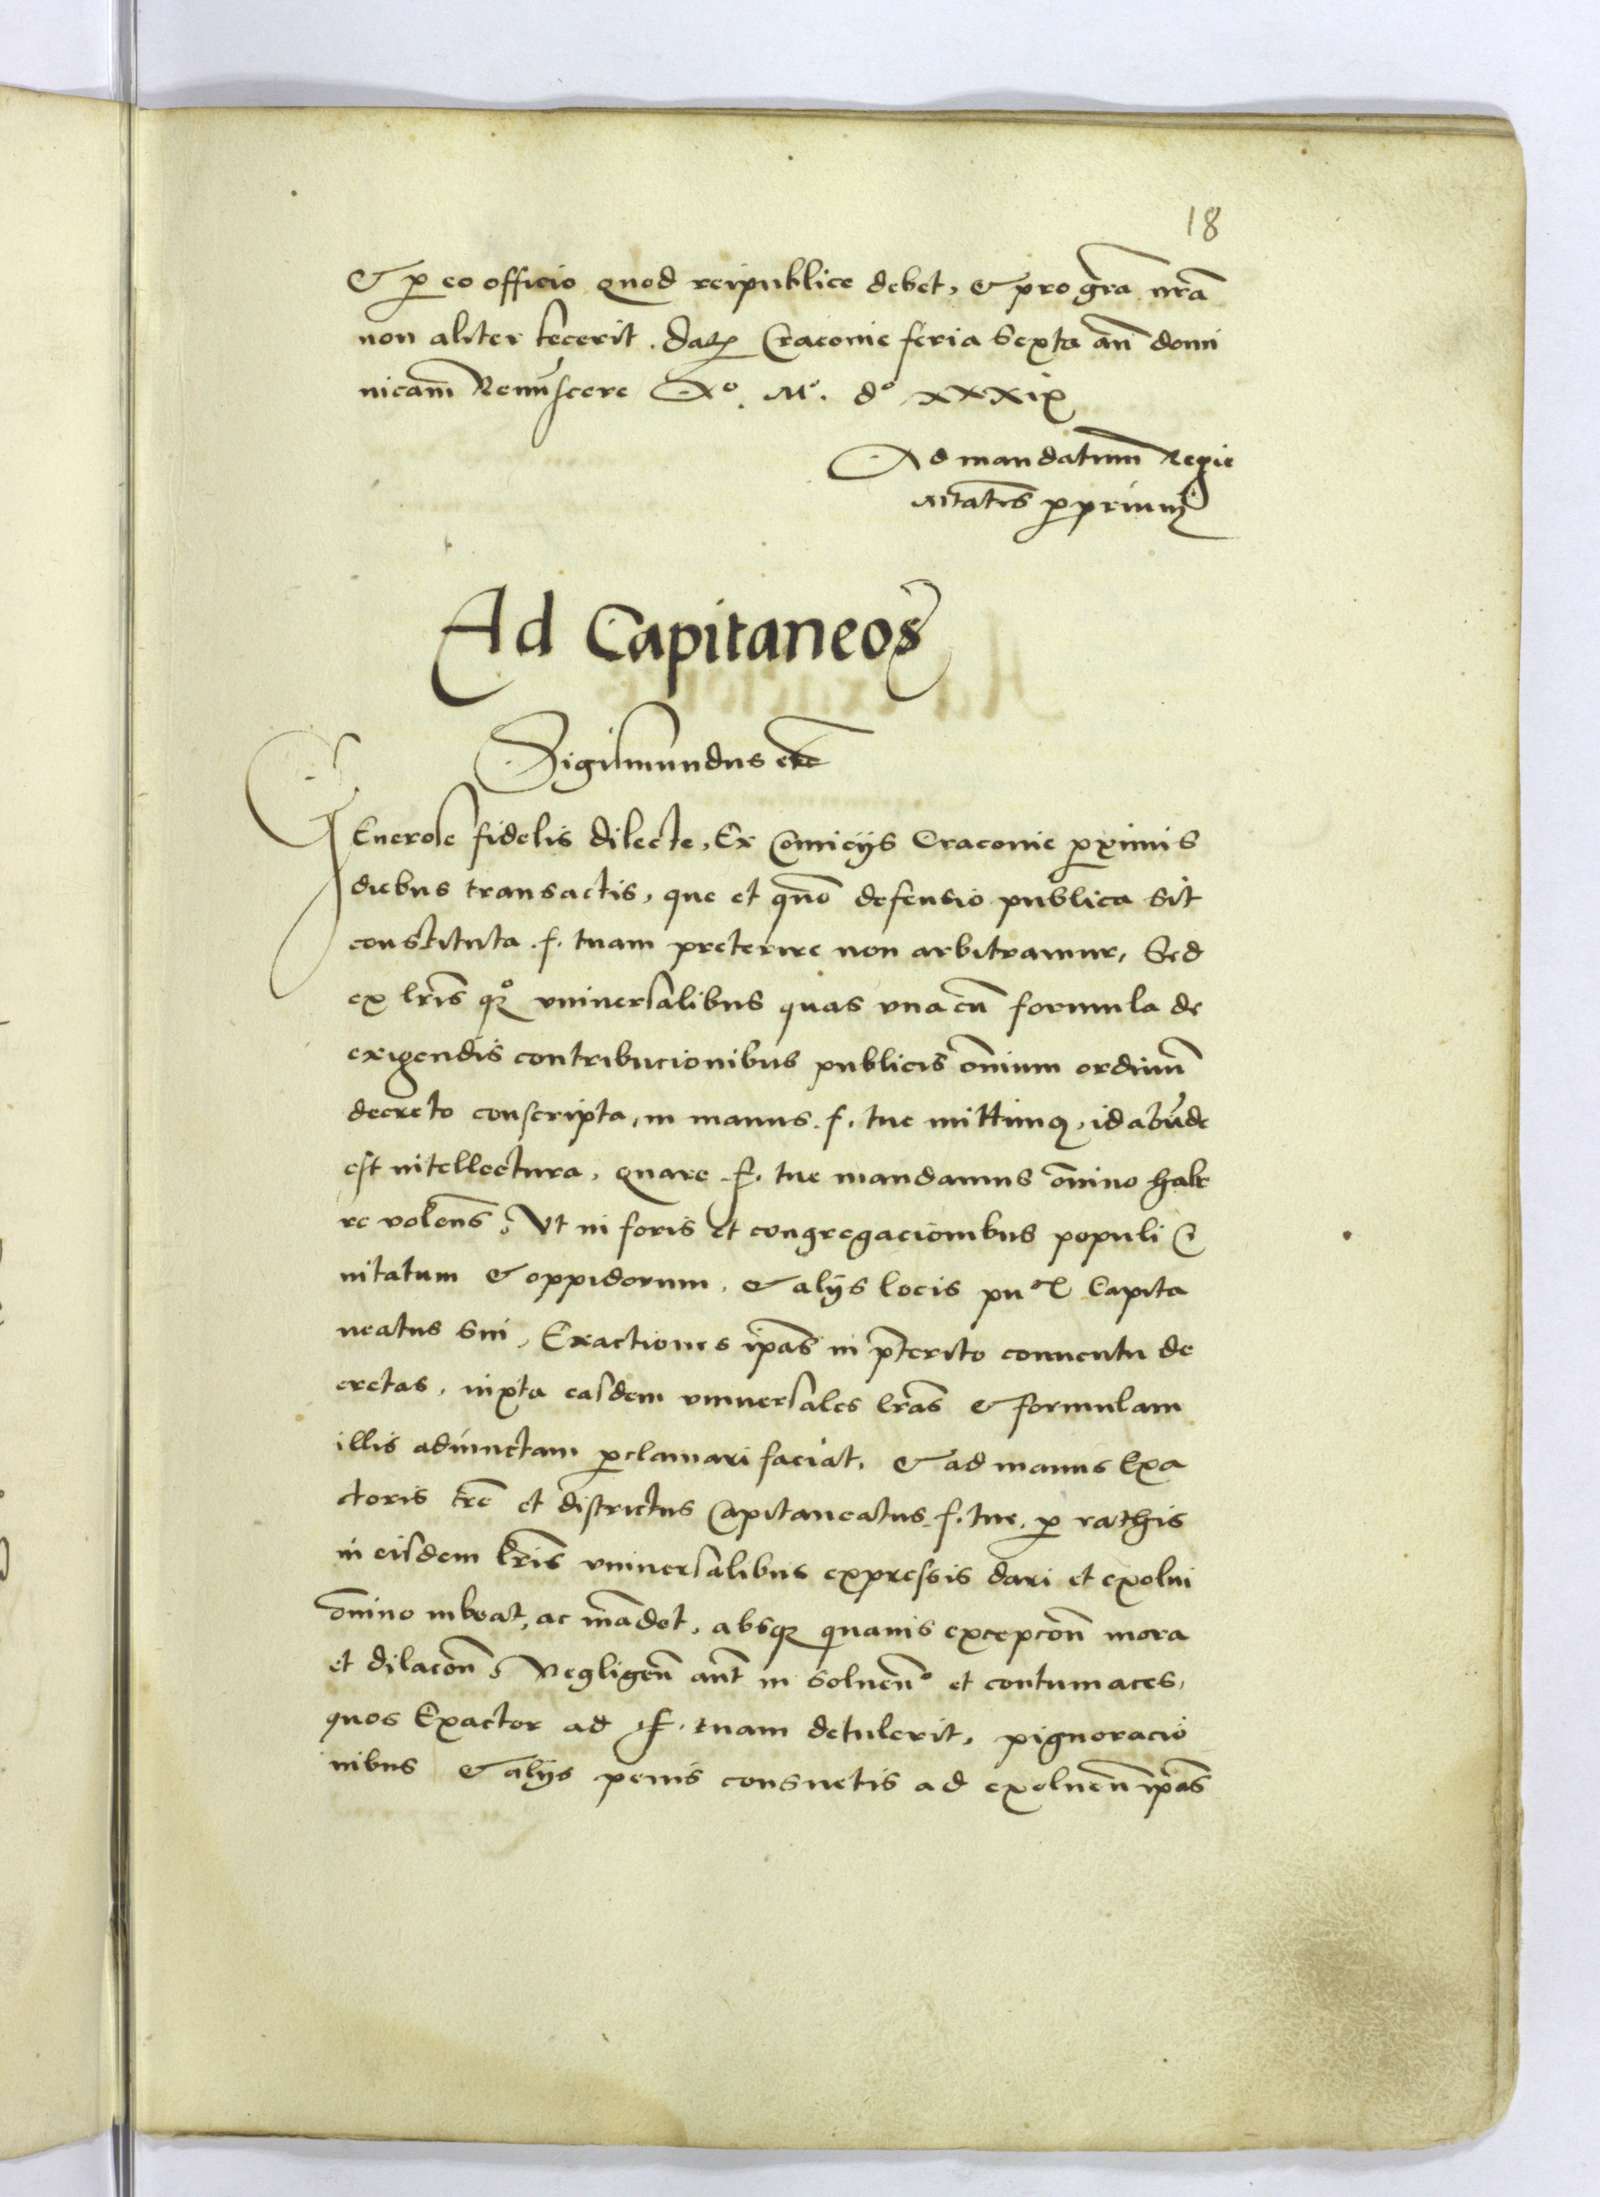 18
& p eo officio quod reipublice debet, & pro gra͞ nra͞
non aliter fecerit. Datꝭ Cracovie feria Sexta an͞ domi
nicam͞ Remi͞scere A°. M°. d° xxxix
Ad mandatum͞ Regie
M͞tatis ppriumꝫ
Ad Capitaneos
Sigismundus etc͞
GEnerose fidelis dilecte, Ex Comicijs Cracovie pximis
diebus transactis, que et quo͞ defensio publica sit
constituta .f. tuam preterire non arbitramur, Sed
ex lri͞s qꝫ° universalibus quas una cu͞ formula de
exigendis contribucionibus publicis om͞nium ordinum͞
decreto conscripta, in manus .f. tue mittimꝰ, id abu͞de
est intellectura, quare .f. tue mandamus om͞nino habe
re volens͞, Ut in foris et congregacionibus populi Ci
vitatum & oppidorum, & alijs locis pu͞ᶜˡ Capita
neatus sui, Exactiones ipas͞ in p͞terito conventu de
cretas, iuxta easdem universales lras͞ & formulam
illis adiunctam pclamari faciat, & ad manus Exa
ctoris tre͞ et districtus Capitaneatus .f. tue, p rathis
in eisdem lri͞s universalibus expressis dari et exolvi
om͞nino iubeat, ac ma͞det, absqꝫ quavis excepcon͞ mora
et dilacon͞, Negligen͞ aut͞ in solven͞° et contumaces,
quos Exactor ad .f. tuam detulerit, pignoracio
nibus & alijs penis consuetis ad exolven͞ ipas͞